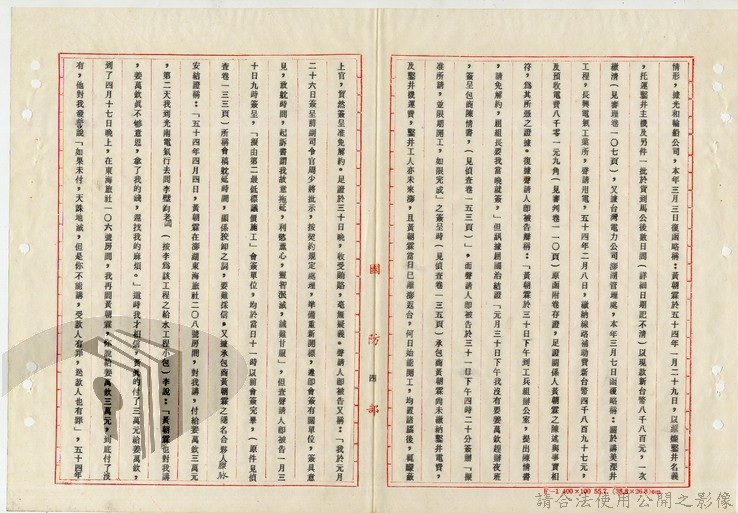 情形，據光和輪船公司，本年三月三日復函略稱：黃朝霖於五十四年一月二十九日，以源燦鑿井名義
，托運鑿井主機及另件一批於貨到馬公後數日間（詳細日期記不清）以現款新台幣八千八百元，一次
繳清（見審理卷一〇七頁），又據台灣電力公司澎湖管理處，本年三月七日函復略稱：關於講美深井
工程，長興電氣工業所，聲請用電，五十四年二月八日，繳納線路補助費新台幣四千八百九十七元，
及預收電費八千零一元九角（見審判卷一一〇頁）原函附卷存證，足證關係人黃朝霖之陳述與事實相
符，為其所憑之證據。復據聲請人即被告辯稱：「黃朝霖於三十日下午到工兵組辦公室，提出陳情書
，請免解約，組長要我當晚就簽，」但訊據趙國治結證「元月三十日下午我沒有要姜萬欽趕辦夜班
，簽呈包商陳情書，（見偵查卷一五三頁）」。而聲請人即被告於三十一日下午四時二十分簽辦「擬
准所請，並限期開工，如限完成」之簽呈時（見偵查卷一三五頁）承包商黃朝霖尚未繳納鑿井電費，
及鑿井機運費，鑿井工人亦未來澎，且黃朝霖當日已離澎返台，何日始能開工，均置諸腦後，輒矇蔽
國防部
四
上官，貿然簽呈准免解約。足證於三十日晚，收受賄賂，毫無疑義。聲請人即被告又稱：「我於元月
二十六日簽呈前副司令官周少將批示，按契約規定處理，準備重新開標，遵即會簽有關單位，簽具意
見，致就時間，起訴書謂我故意拖延，利慾薰心，靈智泯滅，誠難甘服」，但查聲請人即被告一月三
十日九時簽呈，「擬由第二最低標議價施工」會簽單位，均於當日十一時以前會簽完畢，（原件見偵
查卷一三三頁）所稱會稿躭延時間，顯係狡卸之詞，要難採信。又據承包商黃朝霖之隱名合夥人
安結證稱：「五十四年四月四日，黃朝霖在澎湖東海旅社二〇八號房間，對我講，付給姜萬欽三萬元
，第二天我到光南電氣行去問李璧的老（按李為該工程之給水工程小包）李說：「黃朝霖也對我講
，姜萬欽真不夠意思，拿了我的錢，還找我的麻煩。」這時我才相信，真的付了三萬元給姜萬欽，
到了四月十七日晚上，在東海旅社一〇六號房間，我再問黃朝霖，你說給姜萬欽三萬元，到底付了沒
有，他對我發誓說「如果未付，天誅地滅，但是你不能講，受款人有罪，送款人也有罪」，五十四年
F－1 400×100 55.7. (38.8×26.8)cm
請合法使用公開之影像